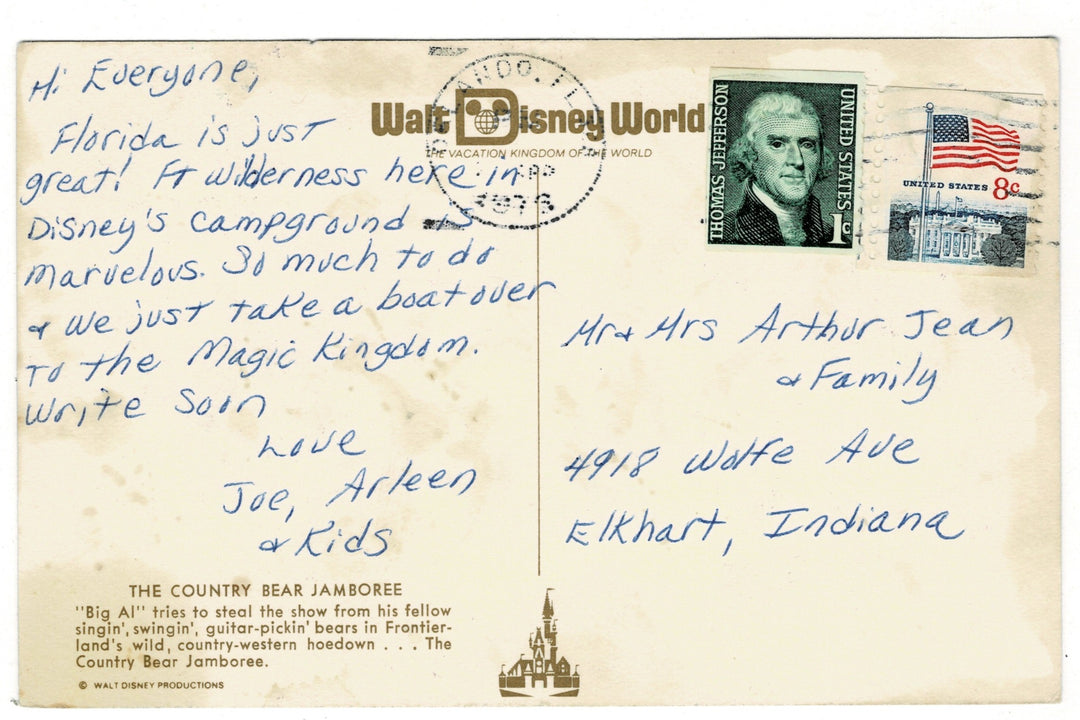 Hi Everyone,
Florida is just
great! Ft Wilderness here in
Disney's campground is
marvelous. So much to do
& we just take a boat over
to the Magic Kingdom.
Write Soon
Love
Joe, Arleen
& Kids
THE COUNTRY BEAR JAMBOREE
"Big Al" tries to steal the show from his fellow
singin', swingin', guitar-pickin' bears in Frontier-
land's wild, country-western hoedown . . . The
Country Bear Jamboree.
© WALT DISNEY PRODUCTIONS
Walt Disney World
THE VACATION KINGDOM OF THE WORLD
ORLANDO, FL
THOMAS JEFFERSON
UNITED STATES
1c
UNITED STATES 8c
Mr & Mrs Arthur Jean
& Family
4918 Wolfe Ave
Elkhart, Indiana